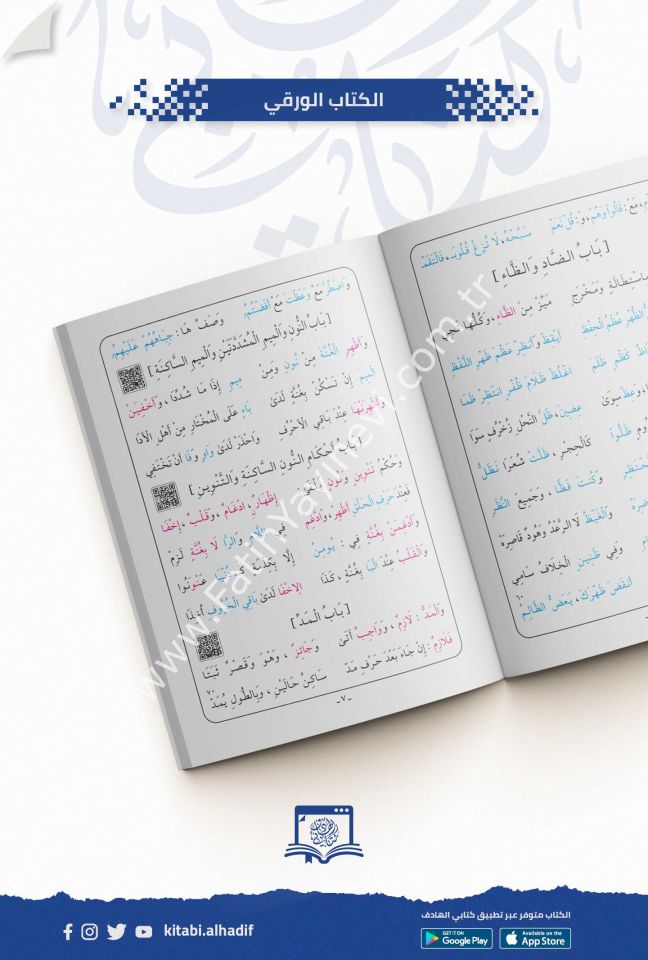 الكتاب الورقي
م، مَعْ: قَالُوا وَهُمْ، وَ: قُلْ نَعَمْ سَبِّحْهُ، لَا تُزِغْ قُلُوبَ، فَالْتَقَمْ
[بَابُ الضَّادِ وَالظَّاءِ]
بِاسْتِطَالَةٍ وَمَخْرَجِ مَيِّزْ مِنَ الظَّاءِ، وَكُلُّهَا تَجِي
الظُّهْرِ عُظْمِ الْحِفْظِ أَيْقِظْ وَأَنْظِرْ عَظْمَ ظَهْرِ اللَّفْظِ
كَظْمِ ظَلَمَ اغْلُظْ ظَلَامَ ظُفْرٍ انْتَظِرْ ظَمَا
، وَعَظْ سِوَى عِضِينَ، ظَلَّ النَّحْلِ زُخْرُفٍ سَوَا
ظَلُّوا كَالْحِجْرِ، ظَلَّتْ شُعَرَا نَظَلُّ
وَكُنْتَ فَظًّا، وَجَمِيعِ النَّظَرِ
وَالْغَيْظُ لَا الرَّعْدُ وَهُودٌ قَاصِرَهْ
وَفِي ظَنِينٍ الْخِلَافُ سَامِي
أَنْقَضَ ظَهْرَكَ، يَعَضُّ الظَّالِمُ
٦٠
وَاضْطُرَّ مَعْ وَعَظْتَ مَعْ أَفَضْتُمُ وَصَفِّ هَا: جِبَاهُهُمْ عَلَيْهِمُ
[بَابُ النُّونِ وَالْمِيمِ الْمُشَدَّدَتَيْنِ وَالْمِيمِ السَّاكِنَةِ]
وَأَظْهِرِ الْغُنَّةَ مِنْ نُونٍ وَمِنْ مِيمٍ إِذَا مَا شُدِّدَا، وَأَخْفِيَنْ
الْمِيمَ إِنْ تَسْكُنْ بِغُنَّةٍ لَدَى بَاءٍ عَلَى الْمُخْتَارِ مِنْ أَهْلِ الْأَدَا
وَأَظْهِرَنْهَا عِنْدَ بَاقِي الْأَحْرُفِ وَاحْذَرْ لَدَى وَاوٍ وَفَا أَنْ تَخْتَفِي
[بَابُ أَحْكَامِ النُّونِ السَّاكِنَةِ وَالتَّنْوِينِ]
وَحُكْمُ تَنْوِينٍ وَنُونٍ يُلْفَى إِظْهَارٌ، ادْغَامٌ، وَقَلْبٌ، إِخْفَا
فَعِنْدَ حَرْفِ الْحَلْقِ أَظْهِرْ، وَادَّغِمْ فِي اللَّامِ وَالرَّا لَا بِغُنَّةٍ لَزِمْ
وَأَدْغِمَنْ بِغُنَّةٍ فِي: يُومِنُ إِلَّا بِكِلْمَةٍ كَـ: دُنْيَا عَنْوَنُوا
وَالْقَلْبُ عِنْدَ الْبَا بِغُنَّةٍ، كَذَا الِاخْفَا لَدَى بَاقِي الْحُرُوفِ أُخِذَا
[بَابُ الْمَدِّ]
وَالْمَدُّ: لَازِمٌ، وَوَاجِبٌ أَتَى وَجَائِزٌ، وَهْوَ وَقَصْرٌ ثَبَتَا
٧٠
فَلَازِمٌ: إِنْ جَاءَ بَعْدَ حَرْفِ مَدّْ سَاكِنُ حَالَيْنِ، وَبِالطُّولِ يُمَدّْ
-٧-
www.FatihYayinevi.com.tr
kitabi.alhadif
الكتاب متوفر عبر تطبيق كتابي الهادف
GET IT ON Google Play
Available on the App Store